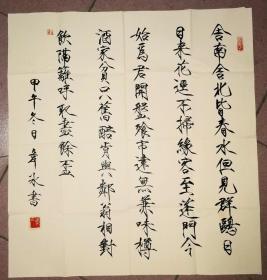 舍南舍北皆春水但見群鷗日
日來花逕不掃緣客至蓬門今
始為君開盤飧市遠無兼味樽
酒家貧只舊醅肯與鄰翁相對
飲隔籬呼取盡餘盃
甲午冬日 書